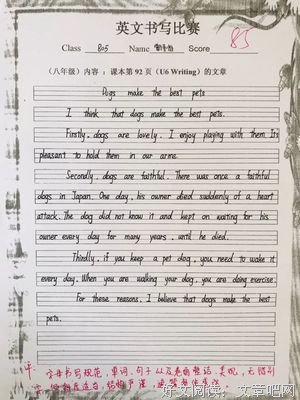 英文书写比赛
Class 805 Name Score 85
（八年级）内容：课本第 92 页（U6 Writing）的文章
Dogs make the best pets
I think that dogs make the best pets.
Firstly, dogs are lovely. I enjoy playing with them. It's
pleasant to hold them in our arms.
Secondly, dogs are faithful. There was once a faithful
dogs in Japan. One day, his owner died suddenly of a heart
attack. The dog did not know it and kept on waiting for his
owner every day for many years, until he died.
Thirdly, if you keep a pet dog, you need to wake it
every day. When you are walking your dog, you are doing exercise.
For these reasons, I believe that dogs make the best
pets.
字母书写规范，单词、句子以及卷面整洁、美观，无错别
字
好文阅读，文章吧网